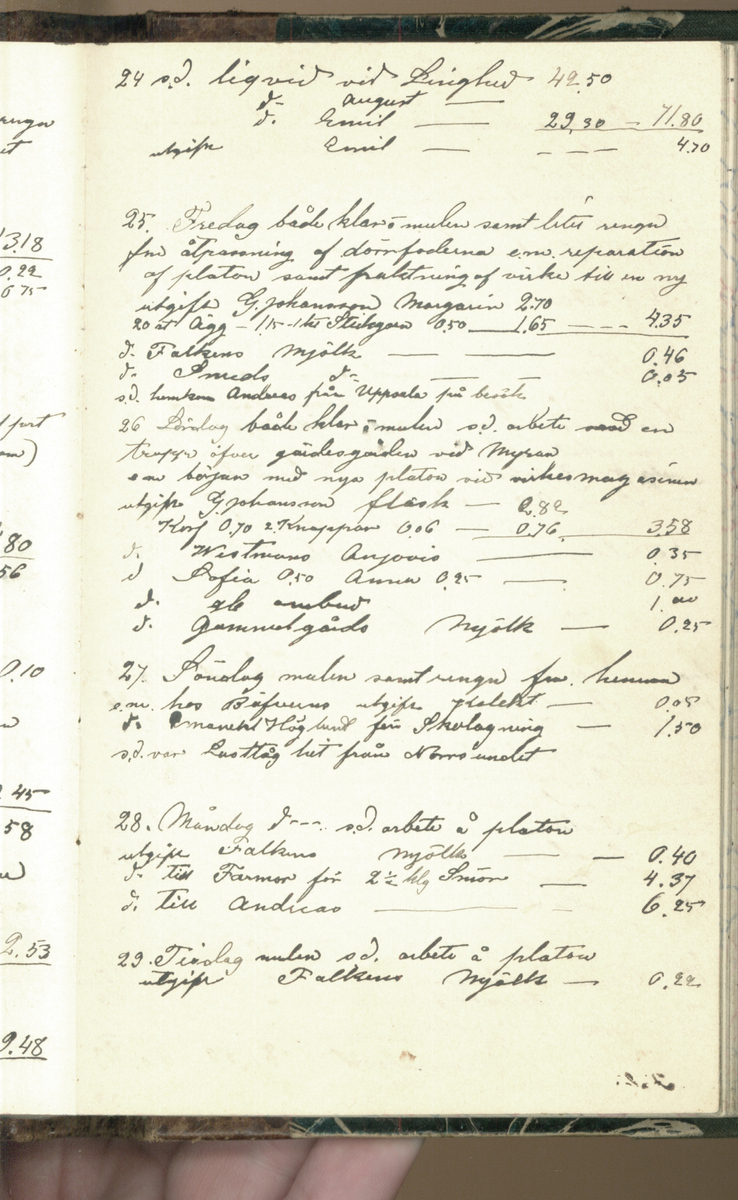 24 s.d. liqvid vid Ljunghed 42.50
d- August —
d. Emil — 29,30 — 71.80
utgift Emil — - - — 4.70
25. Fredag både klar o mulen samt litet rengn
fm åtpassning af dörrfoderna e.m. reparation
af platon samt fraktning af virke till en ny
utgift G. Johansson Margarin 2.70
20 st Ägg — 1.15 - 1 kt Stickgarn 0.50 — 1.65 - - - 4.35
d- Falkens Mjölk — — 0.46
d- Smeds d- — — 0.05
s.d. hemkom Andreas från Uppsala på besök
26 Lördag både klar o mulen s.d. arbete med en
trappa öfver gärdesgården vid Myran
em början med nya platon vid virkesmagasinen
utgift G. Johansson fläsk — 2.82
Korf 0.70 2 Knappar 0.06 — 0.76. 3.58
d. Westmans Anjovis — 0.35
d Sofia 0.50 Anna 0.25 — 0.75
d. ombud 1.00
d. Gammelgårds Mjölk — 0.25
27. Söndag mulen samt rengn fm. hemma
e.m. hos Bäfverns utgift — 0.05
d. Höglund för Skolagning — 1.50
s.d. var Lusttåg hit från Norrsundet
28. Måndag d- - -. s.d. arbete å platon
utgift Falkens Mjölk — — 0.40
d- till Farmor för 2 ½ klg Smör — 4.37
d. till Andreas — 6.25
29. Tisdag mulen s.d. arbete å platon
utgift Falkens Mjölk — 0.22
13.18
0.22
6.75
80
56
0.10
45
58
2.53
9.48